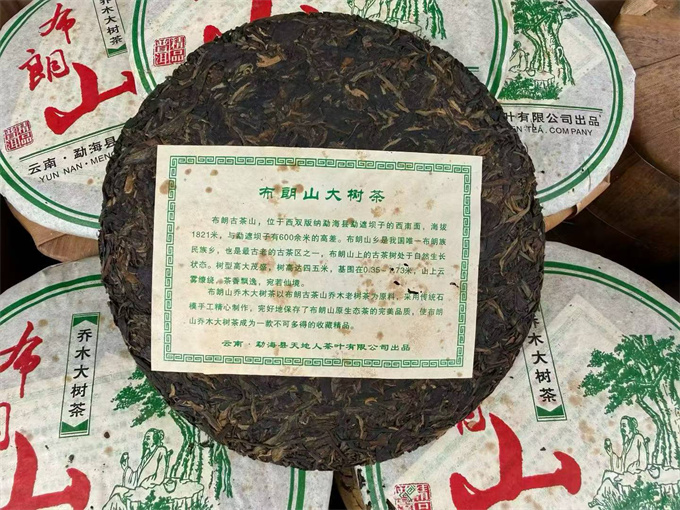 乔木大树茶
布朗
山
精品
普洱
云南·勐海县
YUN NAN·MEN
叶有限公司出品
EN TEA.COMPANY
布朗山大树茶
布朗古茶山，位于西双版纳勐海县勐遮坝子的西南面，海拔
1821米，与勐遮坝子有600余米的高差。布朗山乡是我国唯一布朗族
民族乡，也是最古老的古茶区之一，布朗山上的古茶树处于自然生长
状态。树型高大茂盛，树高达四五米，基围在0.35-1.73米，山上云
雾缭绕，茶香飘逸，宛若仙境。
布朗山乔木大树茶以布朗古茶山乔木老树茶为原料，采用传统石
模手工精心制作，完好地保存了布朗山原生态茶的完美品质，使布朗
山乔木大树茶成为一款不可多得的收藏精品。
云南·勐海县天地人茶叶有限公司出品
乔木大树茶
布朗
山
乔木大树茶
山
精品